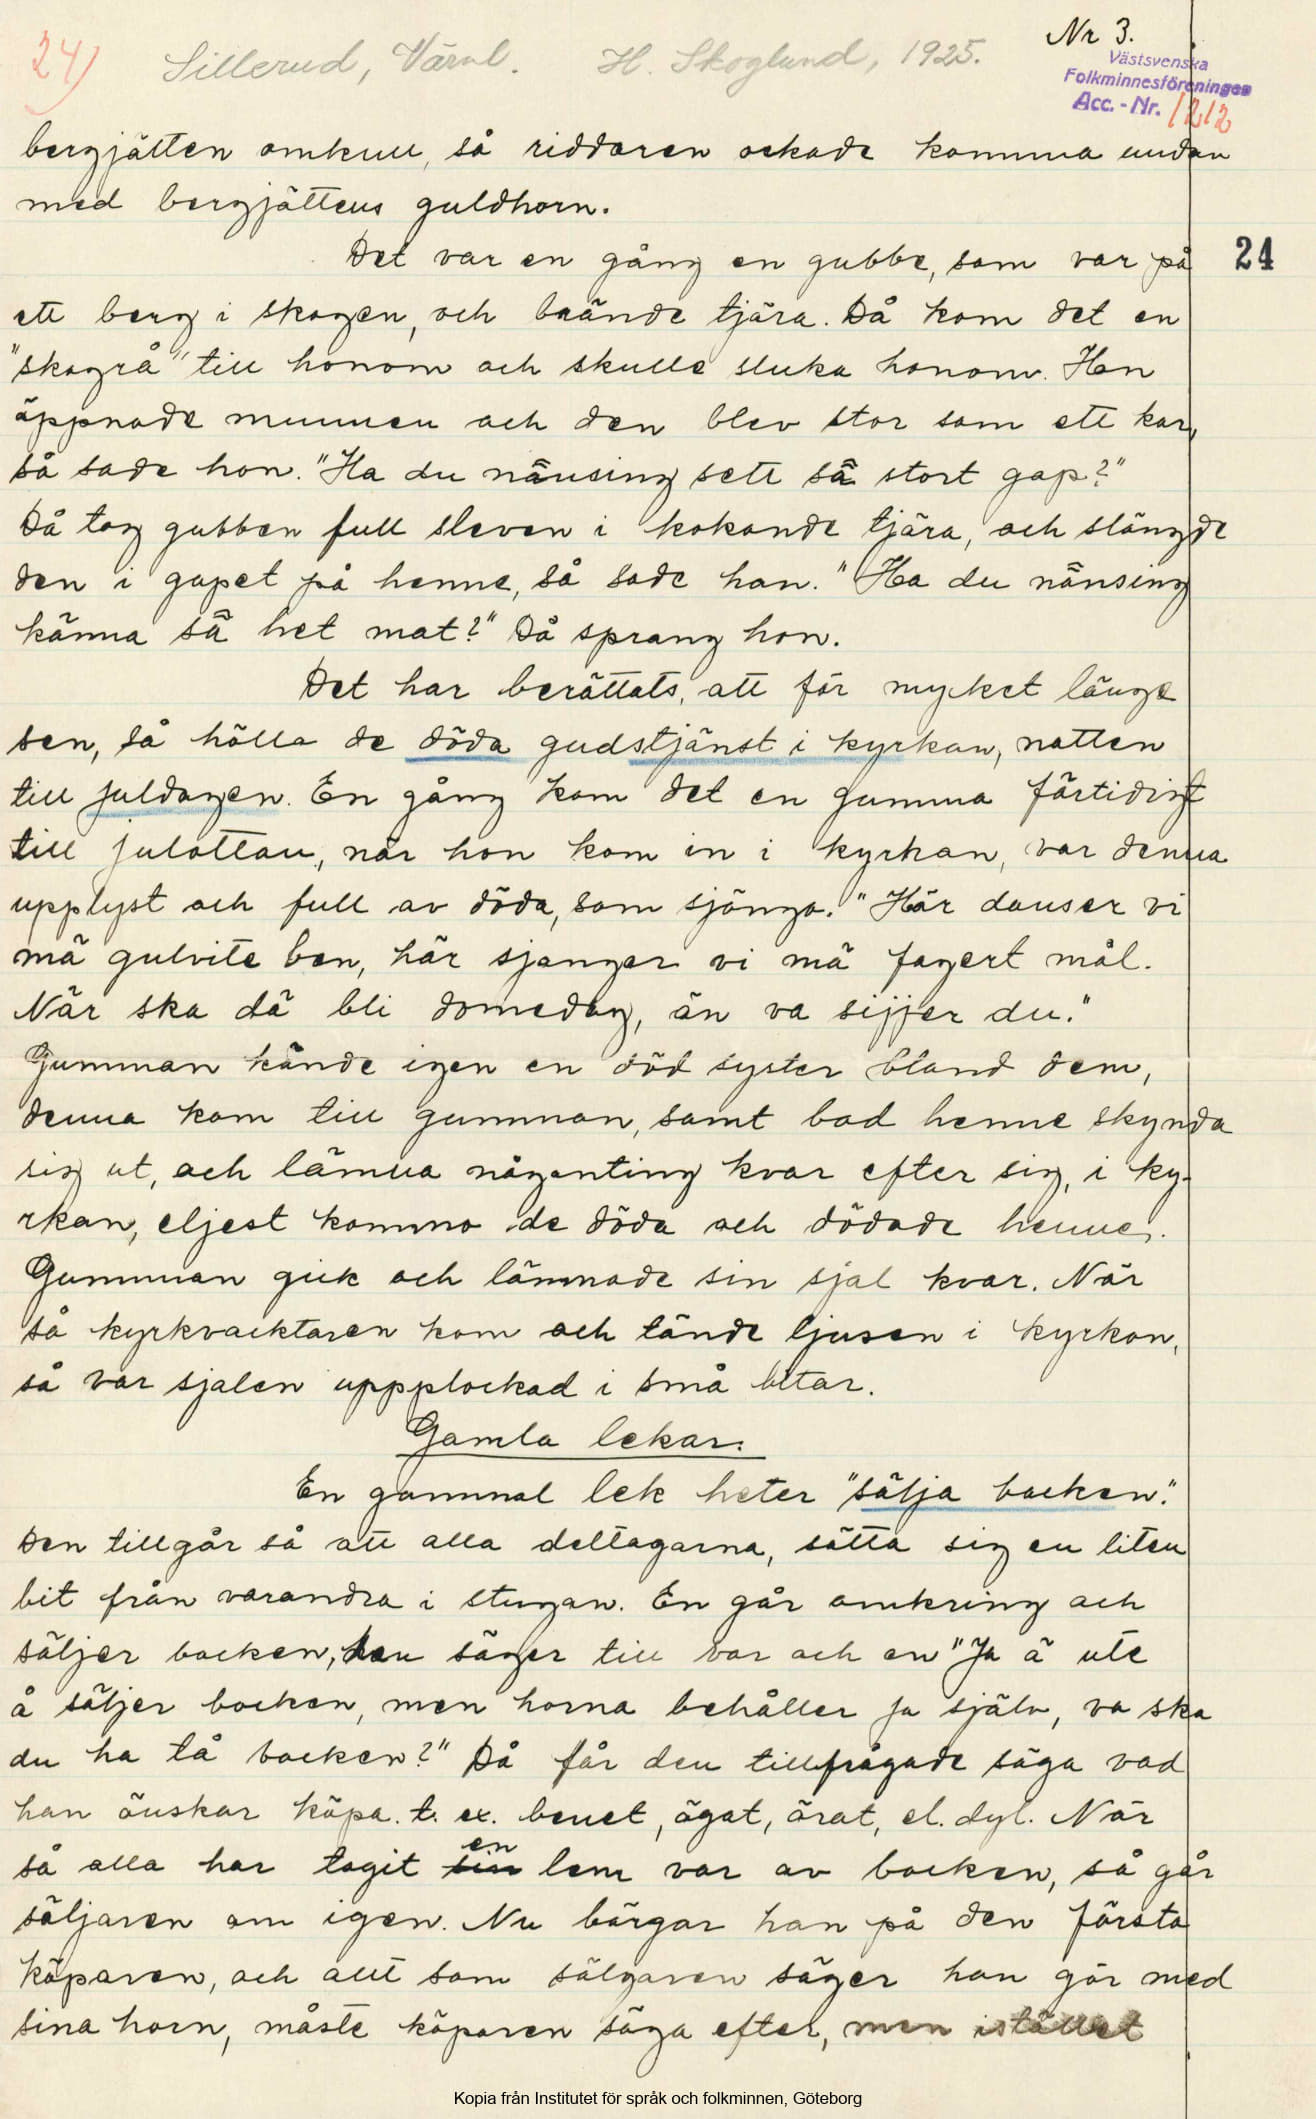 24) Sillerud, Värml. H. Skoglund, 1925.
Nr 3.
Västsvenska
Folkminnesföreningen
Acc.-Nr. 1212
bergjätten omkull, så riddaren ockade komma undan
med bergjättens guldhorn.
24
Det var en gång en gubbe, som var på
ett berg i skogen, och brände tjära. Då kom det en
"skogrå" till honom och skulle sluka honom. Hon
öppnade munnen och den blev stor som ett kar,
så sade hon. "Ha du nänsing sett sä stort gap?"
Då tog gubben full sleven i kokande tjära, och slängde
den i gapet på henne, så sade han. "Ha du nänsing
känna sä het mat?" Då sprang hon.
Det har berättats, att för mycket länge
sen, så hölla de döda gudstjänst i kyrkan, natten
till juldagen. En gång kom det en gumma förtidigt
till julottan, när hon kom in i kyrkan, var denna
upplyst och full av döda, som sjönga. "Här danser vi
mä gulvite ben, här sjanger vi mä fagert mål.
När ska dä bli domedag, än va sijjer du."
Gumman kände igen en död syster bland dem,
denna kom till gumman, samt bad henne skynda
sig ut, och lämna någonting kvar efter sig, i ky-
rkan, eljest kommo de döda och dödade henne.
Gumman gick och lämnade sin sjal kvar. När
så kyrkvacktaren kom och tände ljusen i kyrkan,
så var sjalen uppplockad i små bitar.
Gamla lekar.
En gammal lek heter "sälja bocken".
Den tillgår så att alla deltagarna, sätta sig en liten
bit från varandra i stugan. En går omkring och
säljer bocken, han säger till var och en "Ja ä ute
å säljer bocken, men horna behåller ja själv, va ska
du ha tå bocken?" Då får den tillfrågade säga vad
han önskar köpa. t. ex. benet, ögat, örat, el. dyl. När
så alla har tagit sin en lem var av bocken, så går
säljaren om igen. Nu börgar han på den första
köparen, och allt som sälgaren säger han gör med
sina horn, måste köparen säga efter, men istället
Kopia från Institutet för språk och folkminnen, Göteborg